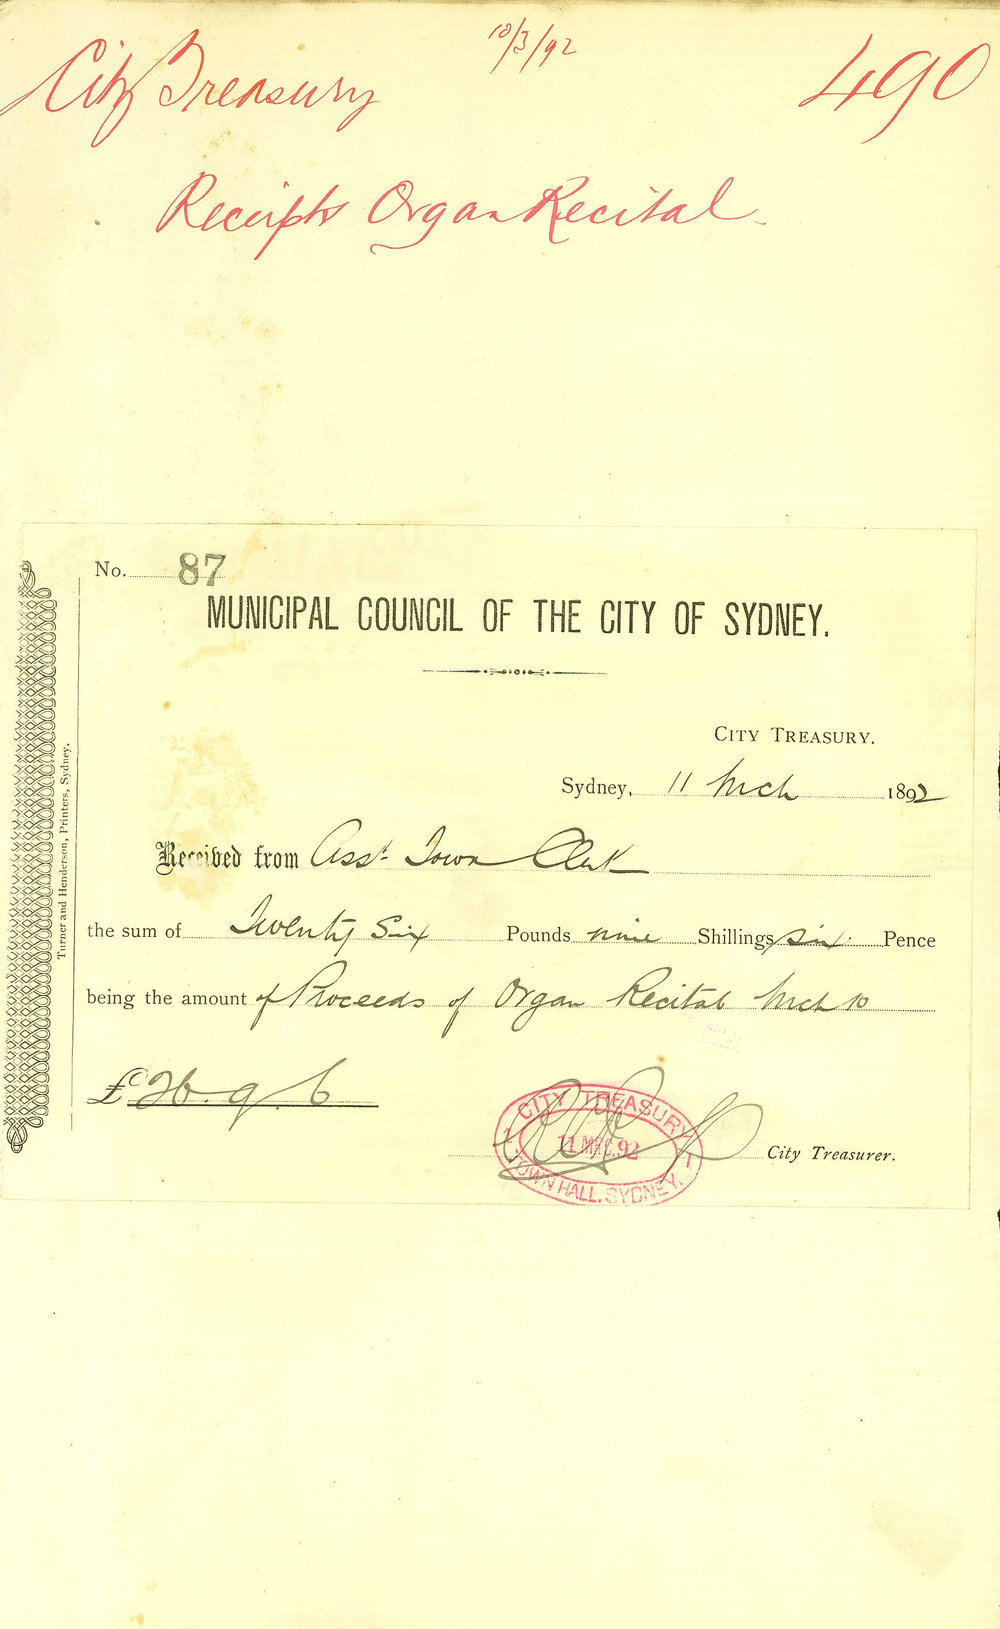 10/3/92
City Treasury 490
Receipts Organ Recital
No. 87
MUNICIPAL COUNCIL OF THE CITY OF SYDNEY.
CITY TREASURY.
Sydney, 11 Mch 1892
Received from Asst. Town Clerk
the sum of Twenty Six Pounds nine Shillings six Pence
being the amount of Proceeds of Organ Recital Mch 10
£ 26. 9. 6
CITY TREASURY
11 MRC. 92
TOWN HALL, SYDNEY.
City Treasurer.
Turner and Henderson, Printers, Sydney.